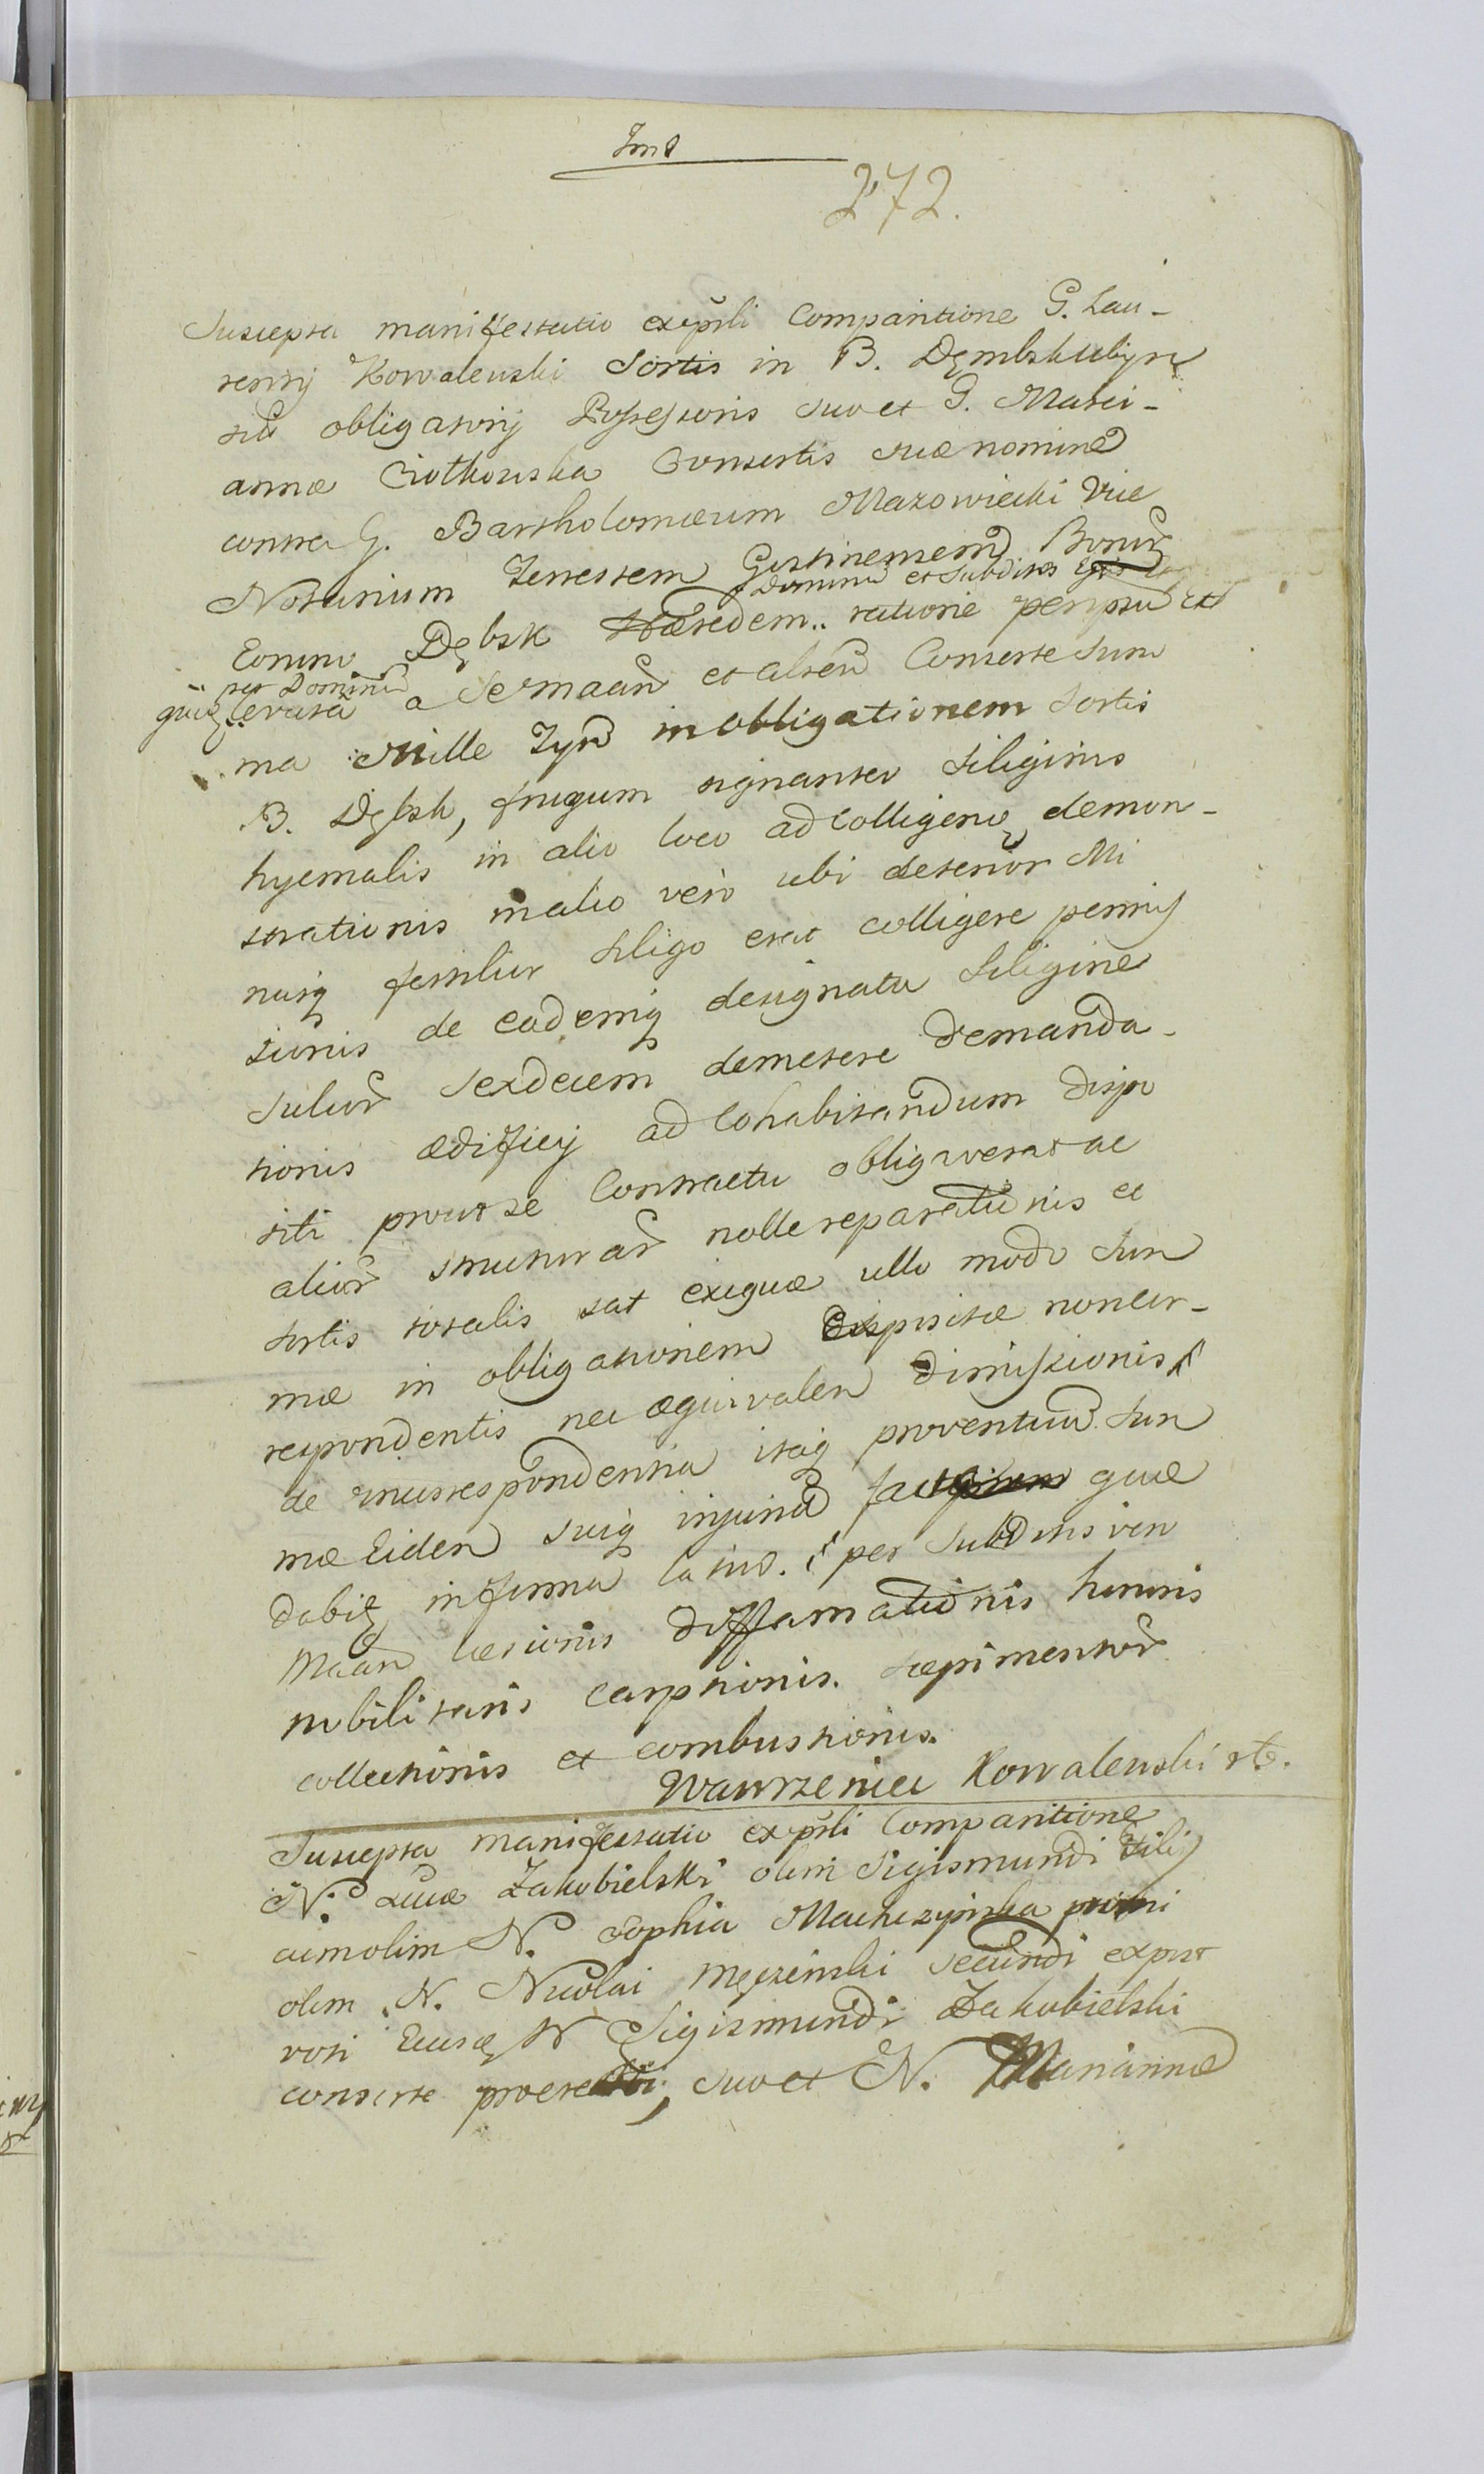 272.
Suscepta manifestatio ex psli Comparitione G. Lau-
rentij Kowalewski Sortis in B. Dęmbsk
obligatorij Possessoris suo et G. Mari-
annæ Ciołkowska Consortis suæ nomine
contra G. Bartholomæum Mazowiecki Vice
Notarium Terrestrem Gostinensem Bonor
Dominum et Subditos
Eorum Dębsk Hæredem ratione
per Dominum
a Se Maan et alten Consorte Sum
ma Mille Tyn in obligationem Sortis
B. Dębsk, frugum signanter Siliginis
hyemalis in alio loco ad Colligend demon-
strationis in alio vero ubi deterior Mi
nusq fertilior Siligo erat colligere permis
sionis de eademq designata Siligine
Sulcor Sexdecem demetere demanda-
tionis ædificij ad Cohabitandum dispo
siti prout se Contractu obligaverat ac
alior structurar nolle reparationis et
Sortis totalis sat exiguæ ullo modo Sum
mæ in obligationem dispositæ non cor-
respondentis nec æquivalen dimissionis
de respondentia itaq proventuum Sum
mæ Eiden suiq injuria quæ
dabit in forma latius. per Subditos ven
Maan læsionis diffamationis honoris
nobilitatis carptionis. sæpimentor
collectionis et combustionis.
Wawrzeniec Kowalewski
Suscepta manifestatio ex psli Comparitione
N. Lucæ Zakobielski olim Sigismundi Filij
cum olim N. Sophia primi
olim N. Nicolai secundi expost
voti Ejusd N Sigismundi Zakobielski
consorte suo et N. Mariannæ